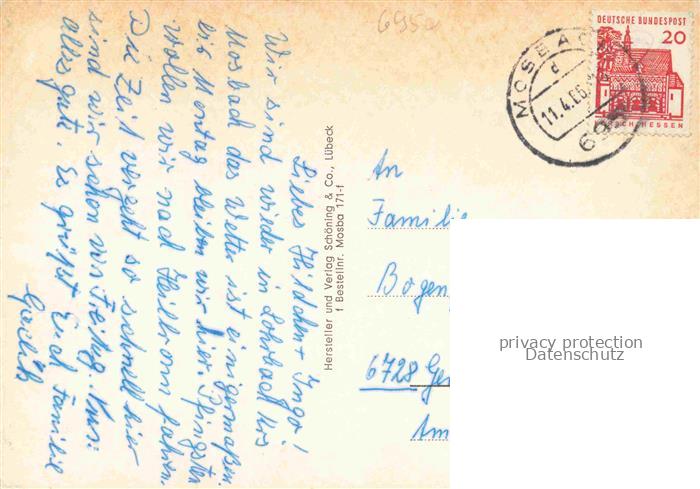 Liebes Hildchen + Ingo!
Wir sind wieder in Lohrbach bis
Mosbach das Wetter ist einigermaßen.
bis Montag bleiben wir hier. Pfingsten
wollen wir nach Heilbronn fahren.
Die Zeit vergeht so schnell hier
sind wir schon vor Freitag.
alles gute. Es grüßt Euch Familie
Hersteller und Verlag Schöning & Co., Lübeck
f Bestellnr. Mosba 171-f
6950
DEUTSCHE BUNDESPOST
20
LORSCH/HESSEN
MOSBACH
d
11.4.66
695
An
Familie
Bogen
6728 Ger
Am
privacy protection
Datenschutz